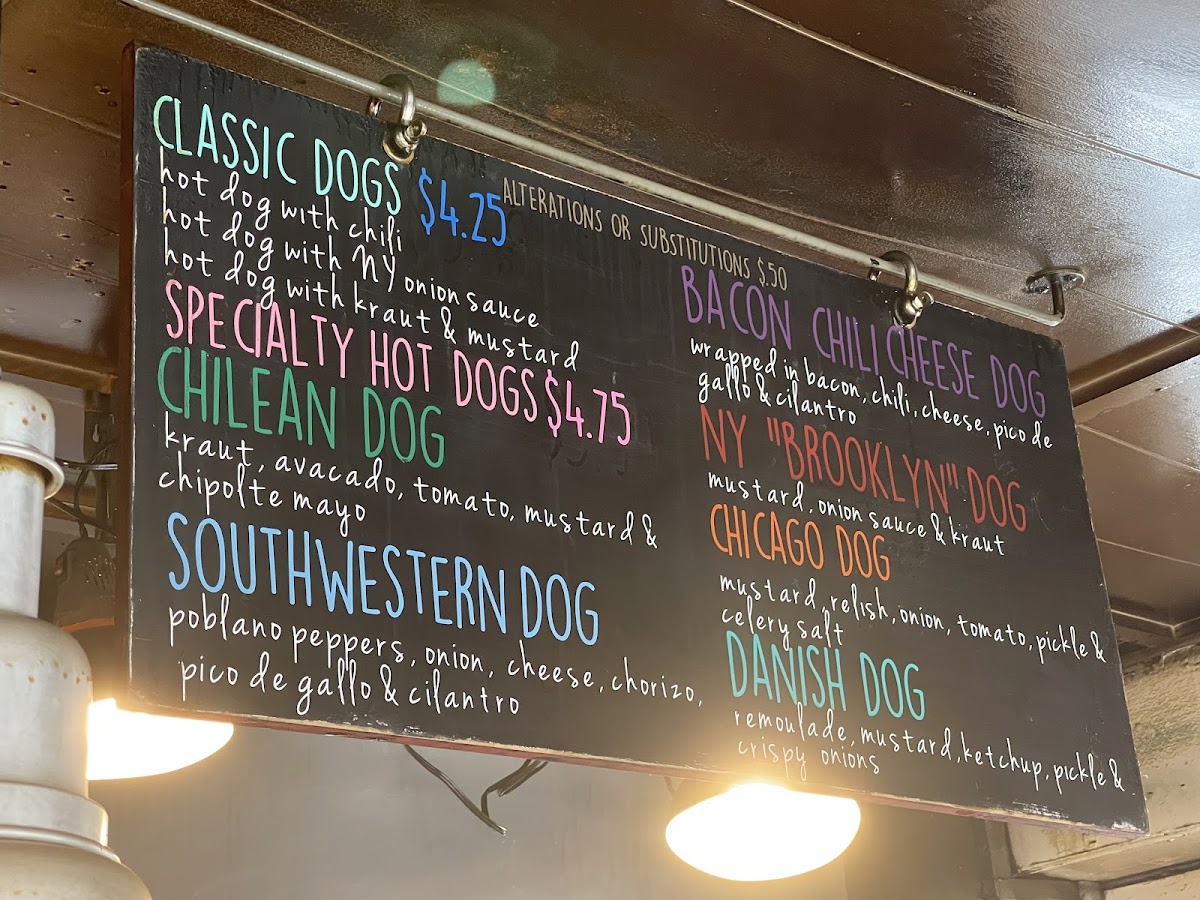 CLASSIC DOGS $4.25
hot dog with chili
hot dog with NY onion sauce
hot dog with kraut & mustard
SPECIALTY HOT DOGS $4.75
CHILEAN DOG
kraut, avacado, tomato, mustard &
chipolte mayo
SOUTHWESTERN DOG
poblano peppers, onion, cheese, chorizo,
pico de gallo & cilantro
ALTERATIONS OR SUBSTITUTIONS $.50
BACON CHILI CHEESE DOG
wrapped in bacon, chili, cheese, pico de
gallo & cilantro
NY "BROOKLYN" DOG
mustard, onion sauce & kraut
CHICAGO DOG
mustard, relish, onion, tomato, pickle &
celery salt
DANISH DOG
remoulade, mustard, ketchup, pickle &
crispy onions